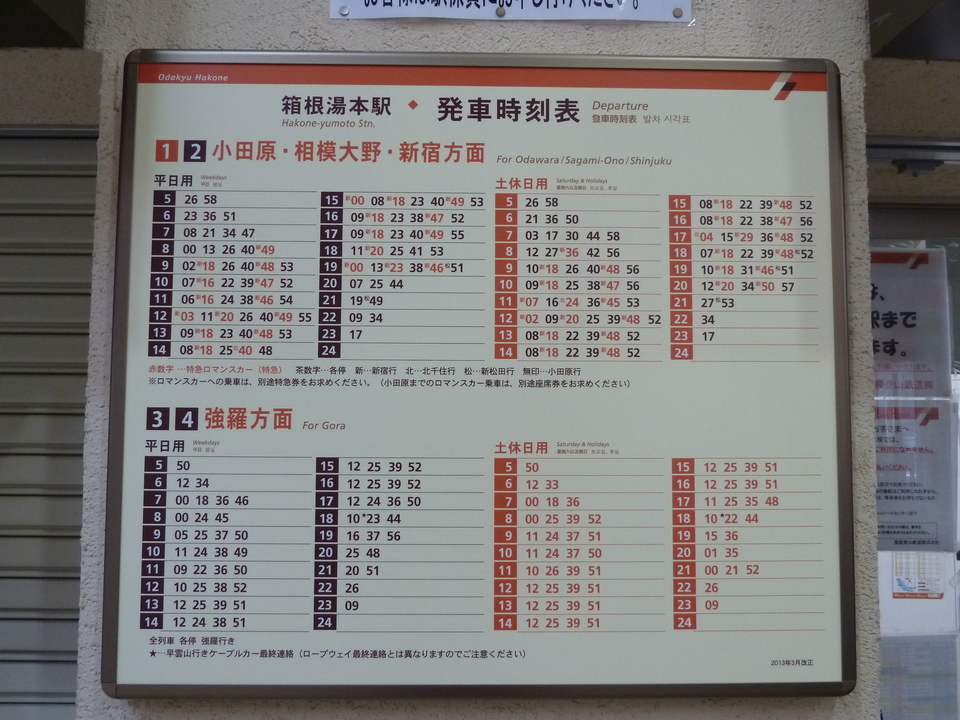 Odakyu Hakone
箱根湯本駅 ◆ 発車時刻表 Departure
Hakone-yumoto Stn. 發車時刻表 발차 시각표
1 2 小田原・相模大野・新宿方面 For Odawara/Sagami-Ono/Shinjuku
平日用 Weekdays
5 26 58
6 23 36 51
7 08 21 34 47
8 00 13 26 40 新49
9 02 新18 26 40 新48 53
10 07 新16 22 39 新47 52
11 06 新16 24 38 新46 54
12 新03 11 新20 26 40 新49 55
13 09 新18 23 40 新48 53
14 08 新18 25 新40 48
15 新00 08 新18 23 40 新49 53
16 09 新18 23 38 新47 52
17 09 新18 23 40 新49 55
18 11 新20 25 41 53
19 新00 13 新23 38 新46 松51
20 07 25 44
21 19 松49
22 09 34
23 17
24
土休日用 Saturday & Holidays
5 26 58
6 21 36 50
7 03 17 30 44 58
8 12 27 新36 42 56
9 10 新18 26 40 新48 56
10 09 新18 25 38 新47 56
11 新07 16 北24 36 新45 53
12 新02 09 新20 25 39 新48 52
13 08 新18 22 39 新48 52
14 08 新18 22 39 新48 52
15 08 新18 22 39 新48 52
16 08 新18 22 38 新47 56
17 北04 15 新29 36 新48 52
18 07 新18 22 39 新48 松52
19 10 新18 31 新46 松51
20 12 新20 34 新50 57
21 27 松53
22 34
23 17
24
赤数字…特急ロマンスカー（特急） 茶数字…各停 新…新宿行 北…北千住行 松…新松田行 無印…小田原行
※ロマンスカーへの乗車は、別途特急券をお求めください。（小田原までのロマンスカー乗車は、別途座席券をお求めください）
3 4 強羅方面 For Gora
平日用 Weekdays
5 50
6 12 34
7 00 18 36 46
8 00 24 45
9 05 25 37 50
10 11 24 38 49
11 09 22 36 50
12 10 25 38 52
13 12 25 39 51
14 12 24 38 51
15 12 25 39 52
16 12 25 39 52
17 12 24 36 50
18 10 ★23 44
19 16 37 56
20 25 48
21 20 51
22 26
23 09
24
土休日用 Saturday & Holidays
5 50
6 12 33
7 00 18 36
8 00 25 39 52
9 11 24 37 51
10 11 24 37 50
11 10 26 39 51
12 12 25 39 51
13 12 25 39 51
14 12 25 39 51
15 12 25 39 51
16 12 25 39 51
17 11 25 35 48
18 10 ★22 44
19 15 36
20 01 35
21 00 21 52
22 26
23 09
24
全列車 各停 強羅行き
★…早雲山行きケーブルカー最終連絡（ロープウェイ最終連絡とは異なりますのでご注意ください）
2013年3月改正
駅まで
ます。